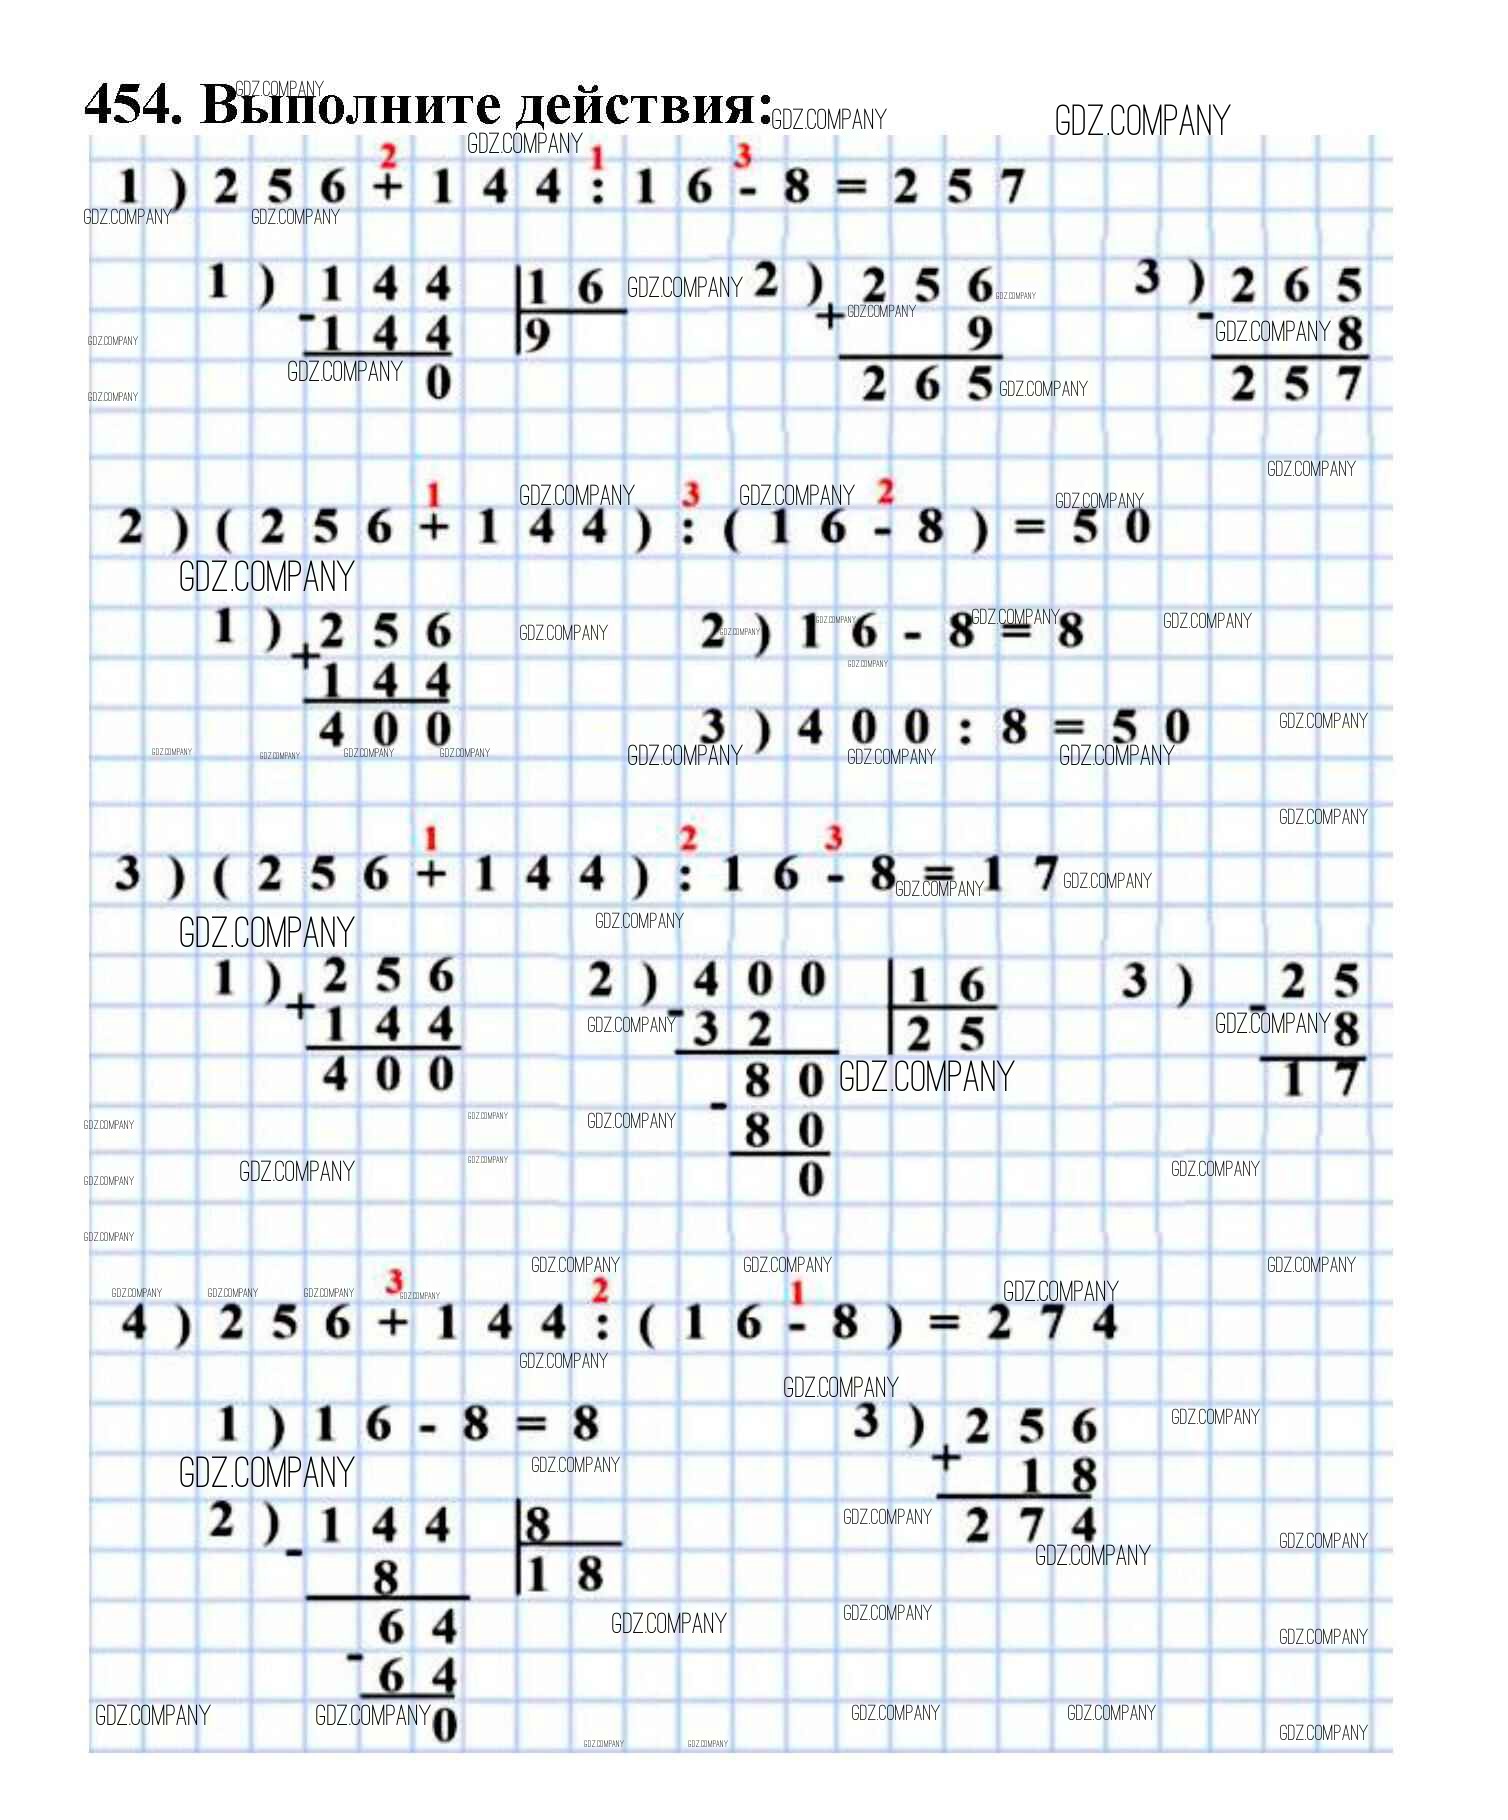 454. Выполните действия:
2 1 3
1) 256+144:16-8=257
1) 144 16 2) 256 3) 265
- 144 9 + 9 - 8
0 265 257
1 3 2
2) (256+144):(16-8)=50
1) 256 2) 16-8=8
+ 144
400 3) 400:8=50
1 2 3
3) (256+144):16-8=17
1) 256 2) 400 16 3) 25
+ 144 - 32 25 - 8
400 80 17
- 80
0
3 2 1
4) 256+144:(16-8)=274
1) 16-8=8 3) 256
+ 18
2) 144 8 274
- 8 18
64
- 64
0
GDZ.COMPANY